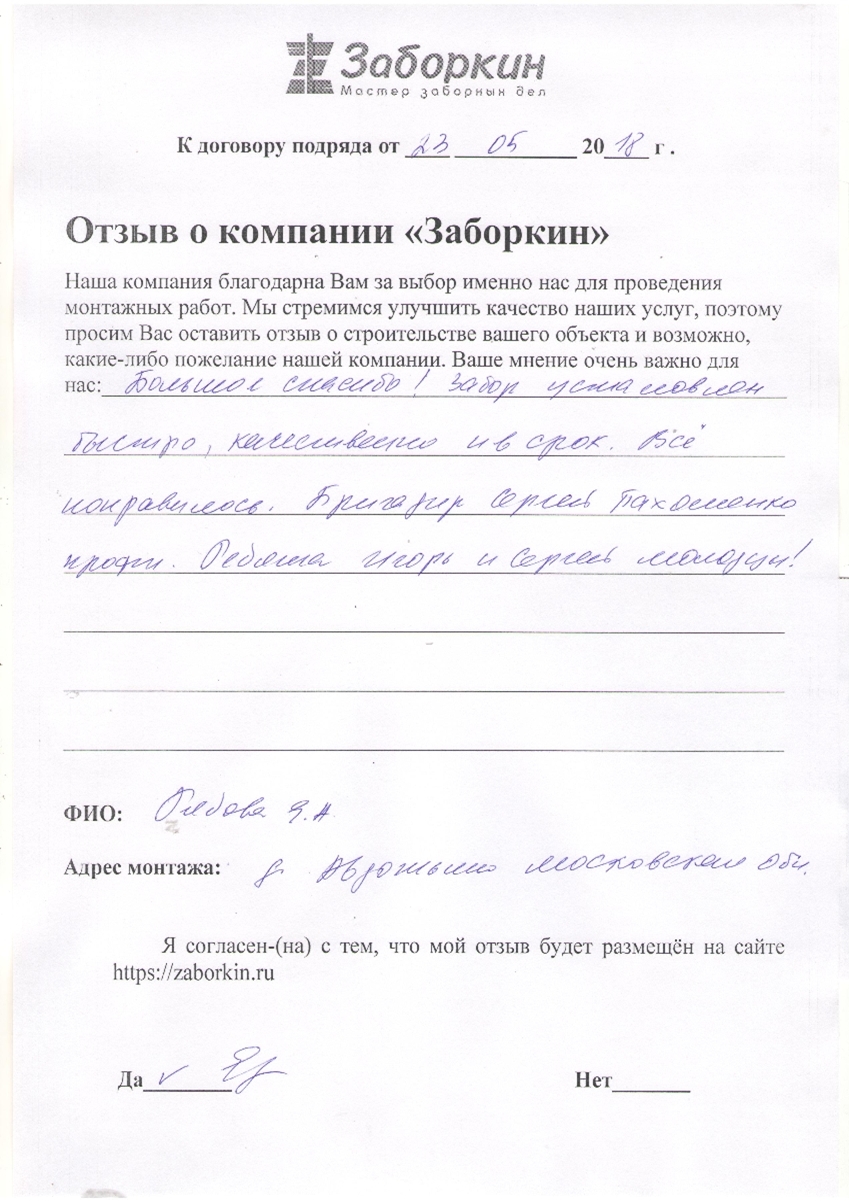 Заборкин
Мастер заборных дел
К договору подряда от 23 05 2018 г .
Отзыв о компании «Заборкин»
Наша компания благодарна Вам за выбор именно нас для проведения
монтажных работ. Мы стремимся улучшить качество наших услуг, поэтому
просим Вас оставить отзыв о строительстве вашего объекта и возможно,
какие-либо пожелание нашей компании. Ваше мнение очень важно для
нас: Большое спасибо! Забор установлен
быстро, качественно и в срок. Всё
понравилось. Бригадир Сергей Пахоменко
профи. Ребята Игорь и Сергей молодцы!
ФИО: Рябова Я.А
Адрес монтажа: д. Авдотьино Московская обл.
Я согласен-(на) с тем, что мой отзыв будет размещён на сайте
https://zaborkin.ru
Да Нет